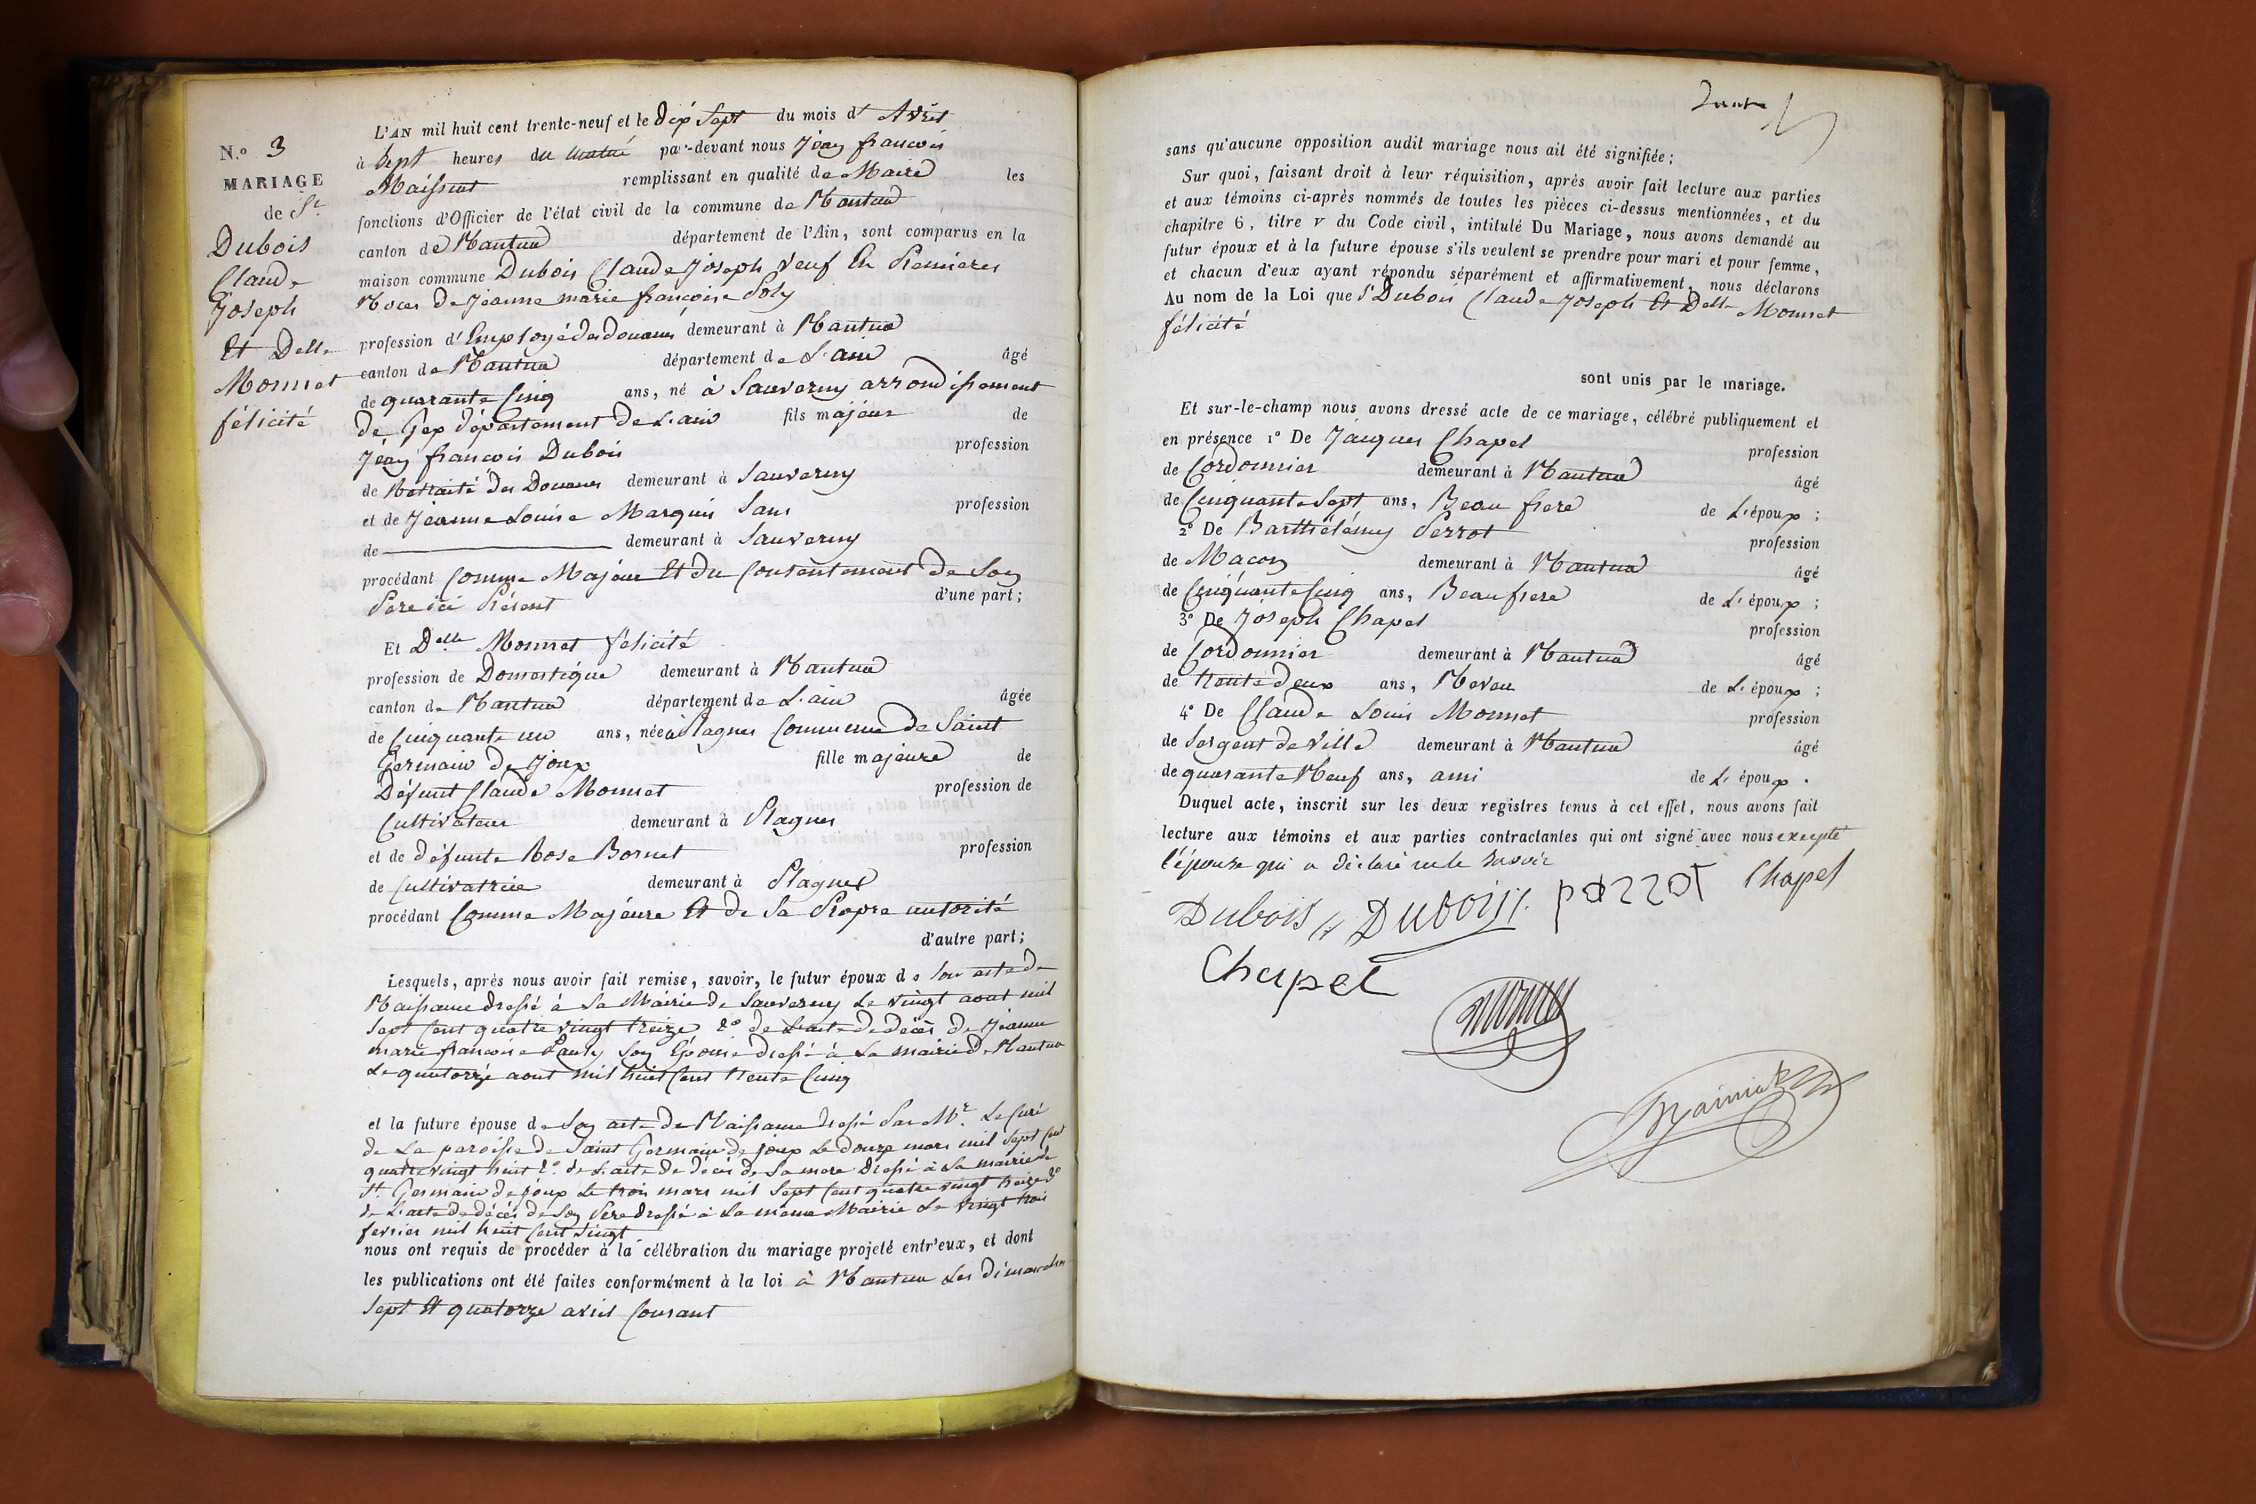 N.o 3
MARIAGE
de Sr
Dubois
Claude
Joseph
Et Delle
Monnet
félicité
L'AN mil huit cent trente-neuf et le dix Sept du mois d' Avril
à Sept heures du matin par-devant nous Jean françois
remplissant en qualité de Maire les
fonctions d'Officier de l'état civil de la commune de Nantua
canton de Nantua département de l'Ain, sont comparus en la
maison commune Dubois Claude Joseph veuf En Premieres
Noces de Jeanne marie françoise Poly
profession d'Employé des douanes demeurant à Nantua
canton de Nantua département de L'ain âgé
de quarante Cinq ans, né à Sauverny arrondissement
de Gex département de L'ain fils majeur de
Jean françois Dubois profession
de Retraité des Douanes demeurant à Sauverny
et de Jeanne Louise Marquis Sans profession
de demeurant à Sauverny
procédant Comme Majeur Et du Consentement de Son
Pere ici Présent d'une part;
Et Delle Monnet félicité
profession de Domestique demeurant à Nantua
canton de Nantua département de L'ain âgée
de Cinquante un ans, née à Plagnes Commune de Saint
Germain de Joux fille majeure de
Défunt Claude Monnet profession de
Cultivateur demeurant à Plagnes
et de défunte Rose Bornet profession
de Cultivatrice demeurant à Plagnes
procédant Comme Majeure Et de Sa Propre autorité
d'autre part;
Lesquels, après nous avoir fait remise, savoir, le futur époux de Son acte de
Naissance dressé à La Mairie de Sauverny Le vingt aout mil
Sept Cent quatre vingt treize 2o de L'acte de décès de Jeanne
marie françoise Pauly Son Epouse dressé à La mairie de Nantua
Le quatorze aout mil huit Cent trente Cinq
et la future épouse de Son acte de Naissance dressé Par Mr. Le Curé
de La paroisse de Saint Germain de joux Le douze mars mil Sept Cent
quatre vingt huit 2o. de L'acte de décès de Sa mere dressé à La mairie de
St. Germain de joux Le trois mars mil Sept Cent quatre vingt treize 3o
de L'acte de décès de Son Pere dressé à La même Mairie Le vingt trois
fevrier mil huit Cent vingt
nous ont requis de procéder à la célébration du mariage projeté entr'eux, et dont
les publications ont été faites conformément à la loi à Nantua Les dimanches
Sept Et quatorze avril Courant
sans qu'aucune opposition audit mariage nous ait été signifiée;
Sur quoi, faisant droit à leur réquisition, après avoir fait lecture aux parties
et aux témoins ci-après nommés de toutes les pièces ci-dessus mentionnées, et du
chapitre 6, titre V du Code civil, intitulé Du Mariage, nous avons demandé au
futur époux et à la future épouse s'ils veulent se prendre pour mari et pour femme,
et chacun d'eux ayant répondu séparément et affirmativement, nous déclarons
Au nom de la Loi que Sr Dubois Claude Joseph Et Delle Monnet
félicité
sont unis par le mariage.
Et sur-le-champ nous avons dressé acte de ce mariage, célébré publiquement et
en présence 1o De Jacques Chapel profession
de Cordonnier demeurant à Nantua âgé
de Cinquante Sept ans, Beau frere de L'époux;
2o De Barthélémy Perrot profession
de Macon demeurant à Nantua âgé
de Cinquante Cinq ans, Beau frere de L'époux;
3o De Joseph Chapel profession
de Cordonnier demeurant à Nantua âgé
de trente deux ans, Neveu de L'époux;
4o De Claude Louis Monnet profession
de Sergent de Ville demeurant à Nantua âgé
de quarante Neuf ans, ami de L'époux.
Duquel acte, inscrit sur les deux registres tenus à cet effet, nous avons fait
lecture aux témoins et aux parties contractantes qui ont signé avec nous excepté
l'épouse qui a déclaré ne le savoir
Dubois Dubois perrot Chapel
Chapel